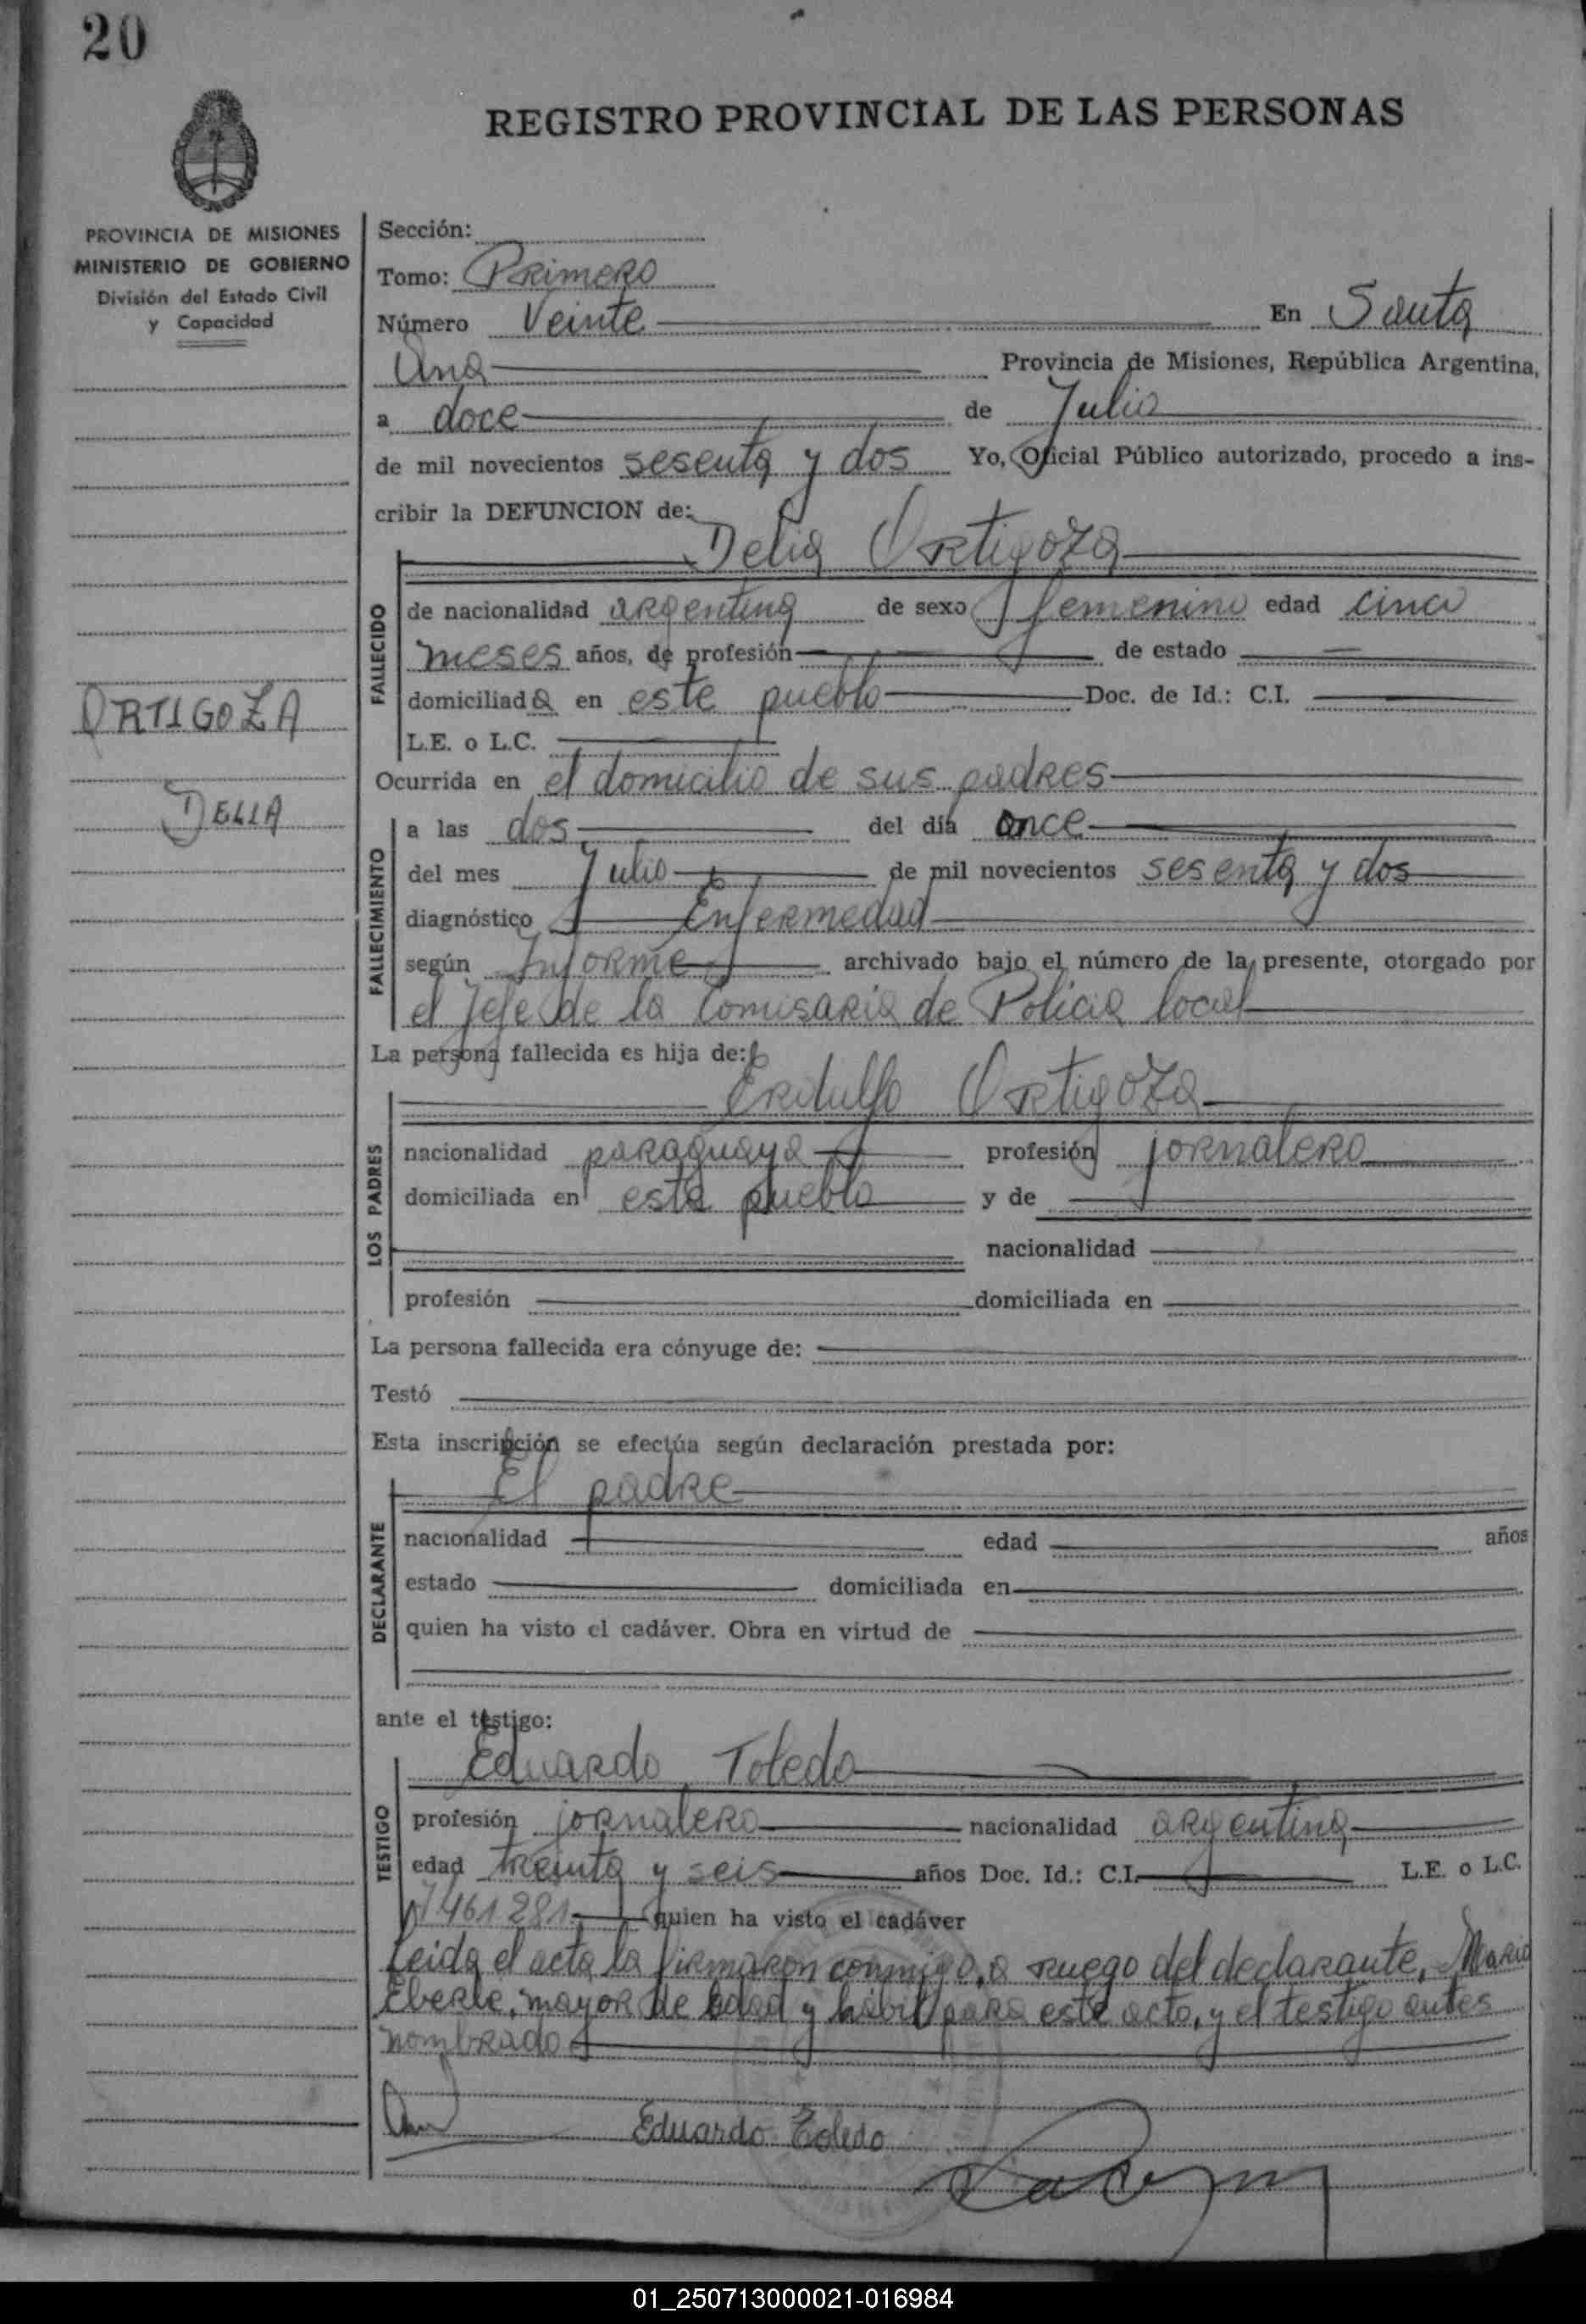 20
REGISTRO PROVINCIAL DE LAS PERSONAS
PROVINCIA DE MISIONES
MINISTERIO DE GOBIERNO
División del Estado Civil
y Capacidad
ORTIGOZA
DELIA
Sección:
Tomo: Primero
Número Veinte En Santa
Ana Provincia de Misiones, República Argentina,
a doce de Julio
de mil novecientos sesenta y dos Yo, Oficial Público autorizado, procedo a ins-
cribir la DEFUNCION de:
Delia Ortigoza
FALLECIDO
de nacionalidad argentina de sexo femenino edad cinco
meses años, de profesión de estado
domiciliada en este pueblo Doc. de Id.: C.I.
L.E. o L.C.
Ocurrida en el domicilio de sus padres
FALLECIMIENTO
a las dos del día once
del mes Julio de mil novecientos sesenta y dos
diagnóstico Enfermedad
según Informe archivado bajo el número de la presente, otorgado por
el Jefe de la Comisaria de Policia local
La persona fallecida es hija de:
LOS PADRES
Eridulfo Ortigoza
nacionalidad paraguaya profesión jornalero
domiciliada en este pueblo y de
nacionalidad
profesión domiciliada en
La persona fallecida era cónyuge de:
Testó
Esta inscripción se efectúa según declaración prestada por:
DECLARANTE
El padre
nacionalidad edad años
estado domiciliada en
quien ha visto el cadáver. Obra en virtud de
ante el testigo:
TESTIGO
Eduardo Toledo
profesión jornalero nacionalidad argentina
edad treinta y seis años Doc. Id.: C.I. L.E. o L.C.
7461281 quien ha visto el cadáver
Leida el acta la firmaron conmigo, a ruego del declarante, Mario
Eberle, mayor de edad y hábil para este acto, y el testigo antes
nombrado
Eduardo Toledo
01_250713000021-016984